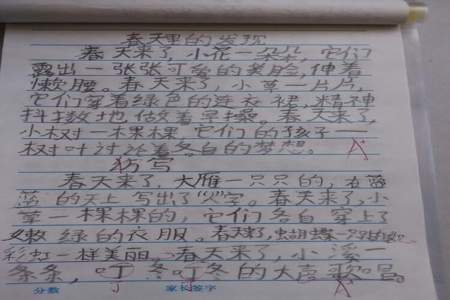 春天里的发现
春天来了,小花一朵朵,它们
露出一张张可爱的笑脸,伸着
懒腰。春天来了,小草一片片,
它们穿着绿色的连衣裙,精神
抖擞地做着早操。春天来了,
小树一棵棵,它们的孩子——
树叶讨论着各自的梦想。
仿写
春天来了,大雁一只只的,在蓝
蓝的天上写出了"人"字。春天来了,小
草一棵棵的,它们各自穿上了
嫩绿的衣服。春天来了,蝴蝶一只只的如
彩虹一样美丽。春天来了,小溪一
条条,叮冬叮冬的大声歌唱。
分数 家长签字